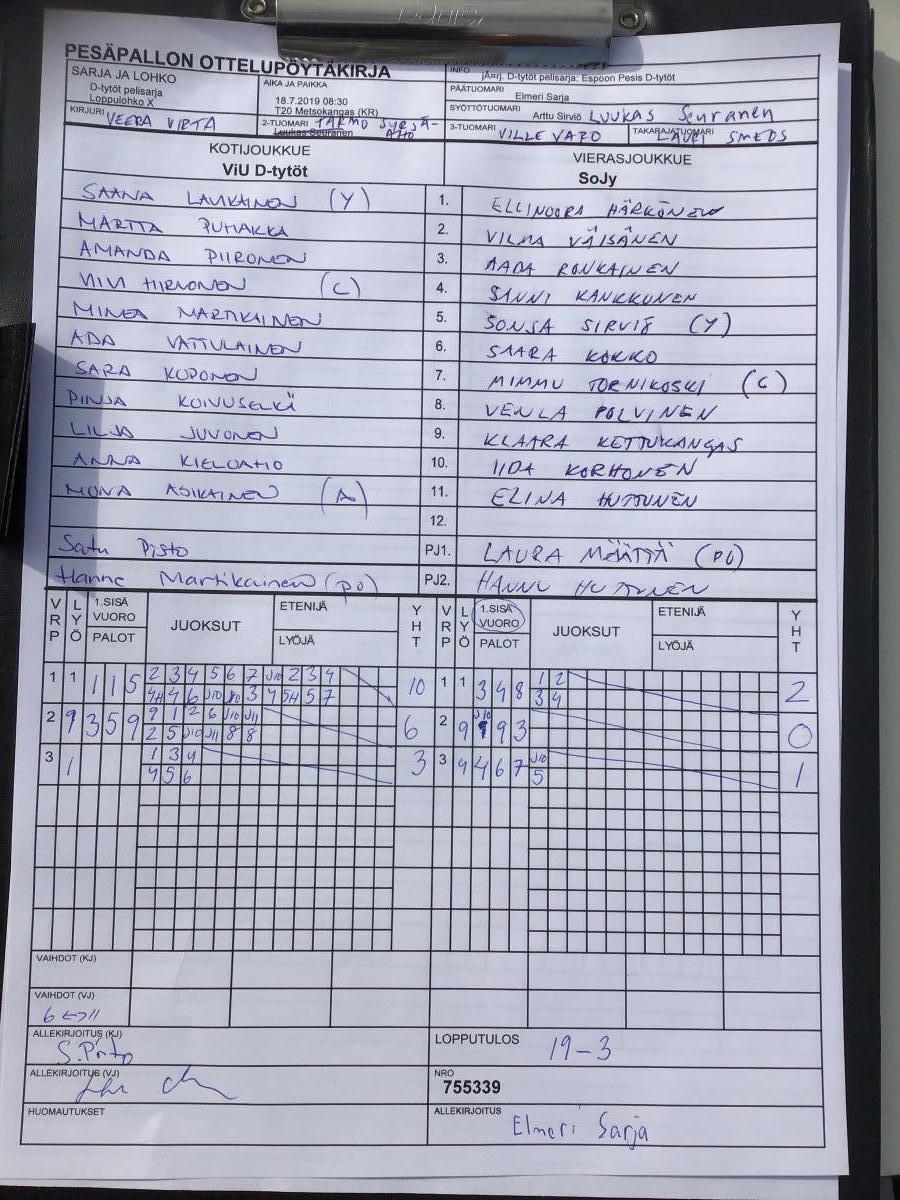 PESÄPALLON OTTELUPÖYTÄKIRJA
SARJA JA LOHKO
D-tytöt pelisarja
Loppulohko X
AIKA JA PAIKKA
18.7.2019 08:30
T20 Metsokangas (KR)
INFO
jÄnj. D-tytöt pelisarja: Espoon Pesis D-tytöt
PÄÄTUOMARI
Elmeri Sarja
SYÖTTÖTUOMARI
Arttu Sirviö LUUKAS Seuranen
KIRJURI VEERA VIRTA
2-TUOMARI TARMO SYRJÄ-
Luukas Seuranen AHO
3-TUOMARI VILLE VARO
TAKARAJATUOMARI
LAURI SMEDS
KOTIJOUKKUE
ViU D-tytöt
VIERASJOUKKUE
SoJy
SAANA LAUKAINEN (Y) 1. ELLINOORA HÄRKÖNEN
MARTTA PUHAKKA 2. VILMA VÄISÄNEN
AMANDA PIIRONEN 3. AADA RONKAINEN
VIIVI HIRVONEN (C) 4. SANNI KANKKUNEN
MINEA MARTIKAINEN 5. SONJA SIRVIÖ (Y)
ADA VATTULAINEN 6. SAARA KOKKO
SARA KUPONEN 7. MIMMU TORNIKOSKI (C)
PINJA KOIVUSELKÄ 8. VENLA POLVINEN
LILJA JUVONEN 9. KLAARA KETTUKANGAS
ANNA KIELOAHO 10. IIDA KORHONEN
MONA ASIKAINEN (A) 11. ELINA HUTTUNEN
12.
Satu Pisto PJ1. LAURA MÄÄTTÄ (PÖ)
Hanne Martikainen (PÖ) PJ2. HANNU HUTTUNEN
VRP LYÖ 1.SISÄ VUORO PALOT JUOKSUT ETENIJÄ LYÖJÄ YHT VRP LYÖ 1.SISÄ VUORO PALOT JUOKSUT ETENIJÄ LYÖJÄ YHT
1 1 1 1 5 2 3 4 5 6 7 J10 2 3 4 10 1 1 3 4 8 1 2 2
4H 4 6 J10 3 4 5H 5 7 3 4
2 9 3 5 9 9 1 2 6 J10 J11 6 2 9 J10 9 3 0
2 5 J10 J11 8 8
3 1 1 3 4 3 3 9 4 6 7 J10 1
4 5 6 5
VAIHDOT (KJ)
VAIHDOT (VJ)
6 <-> 11
ALLEKIRJOITUS (KJ)
S.Pisto
LOPPUTULOS 19-3
ALLEKIRJOITUS (VJ)
NRO
755339
HUOMAUTUKSET
ALLEKIRJOITUS
Elmeri Sarja